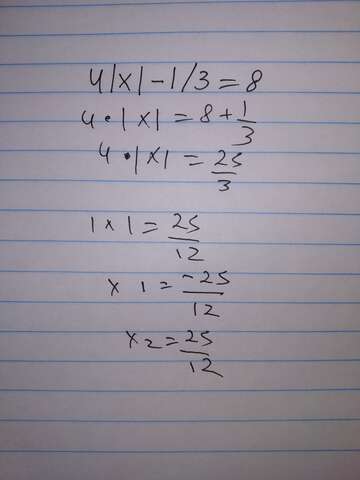 4|x|-1/3=8
4·|x|=8+1/3
4·|x|=25/3
|x|=25/12
x1=-25/12
x2=25/12